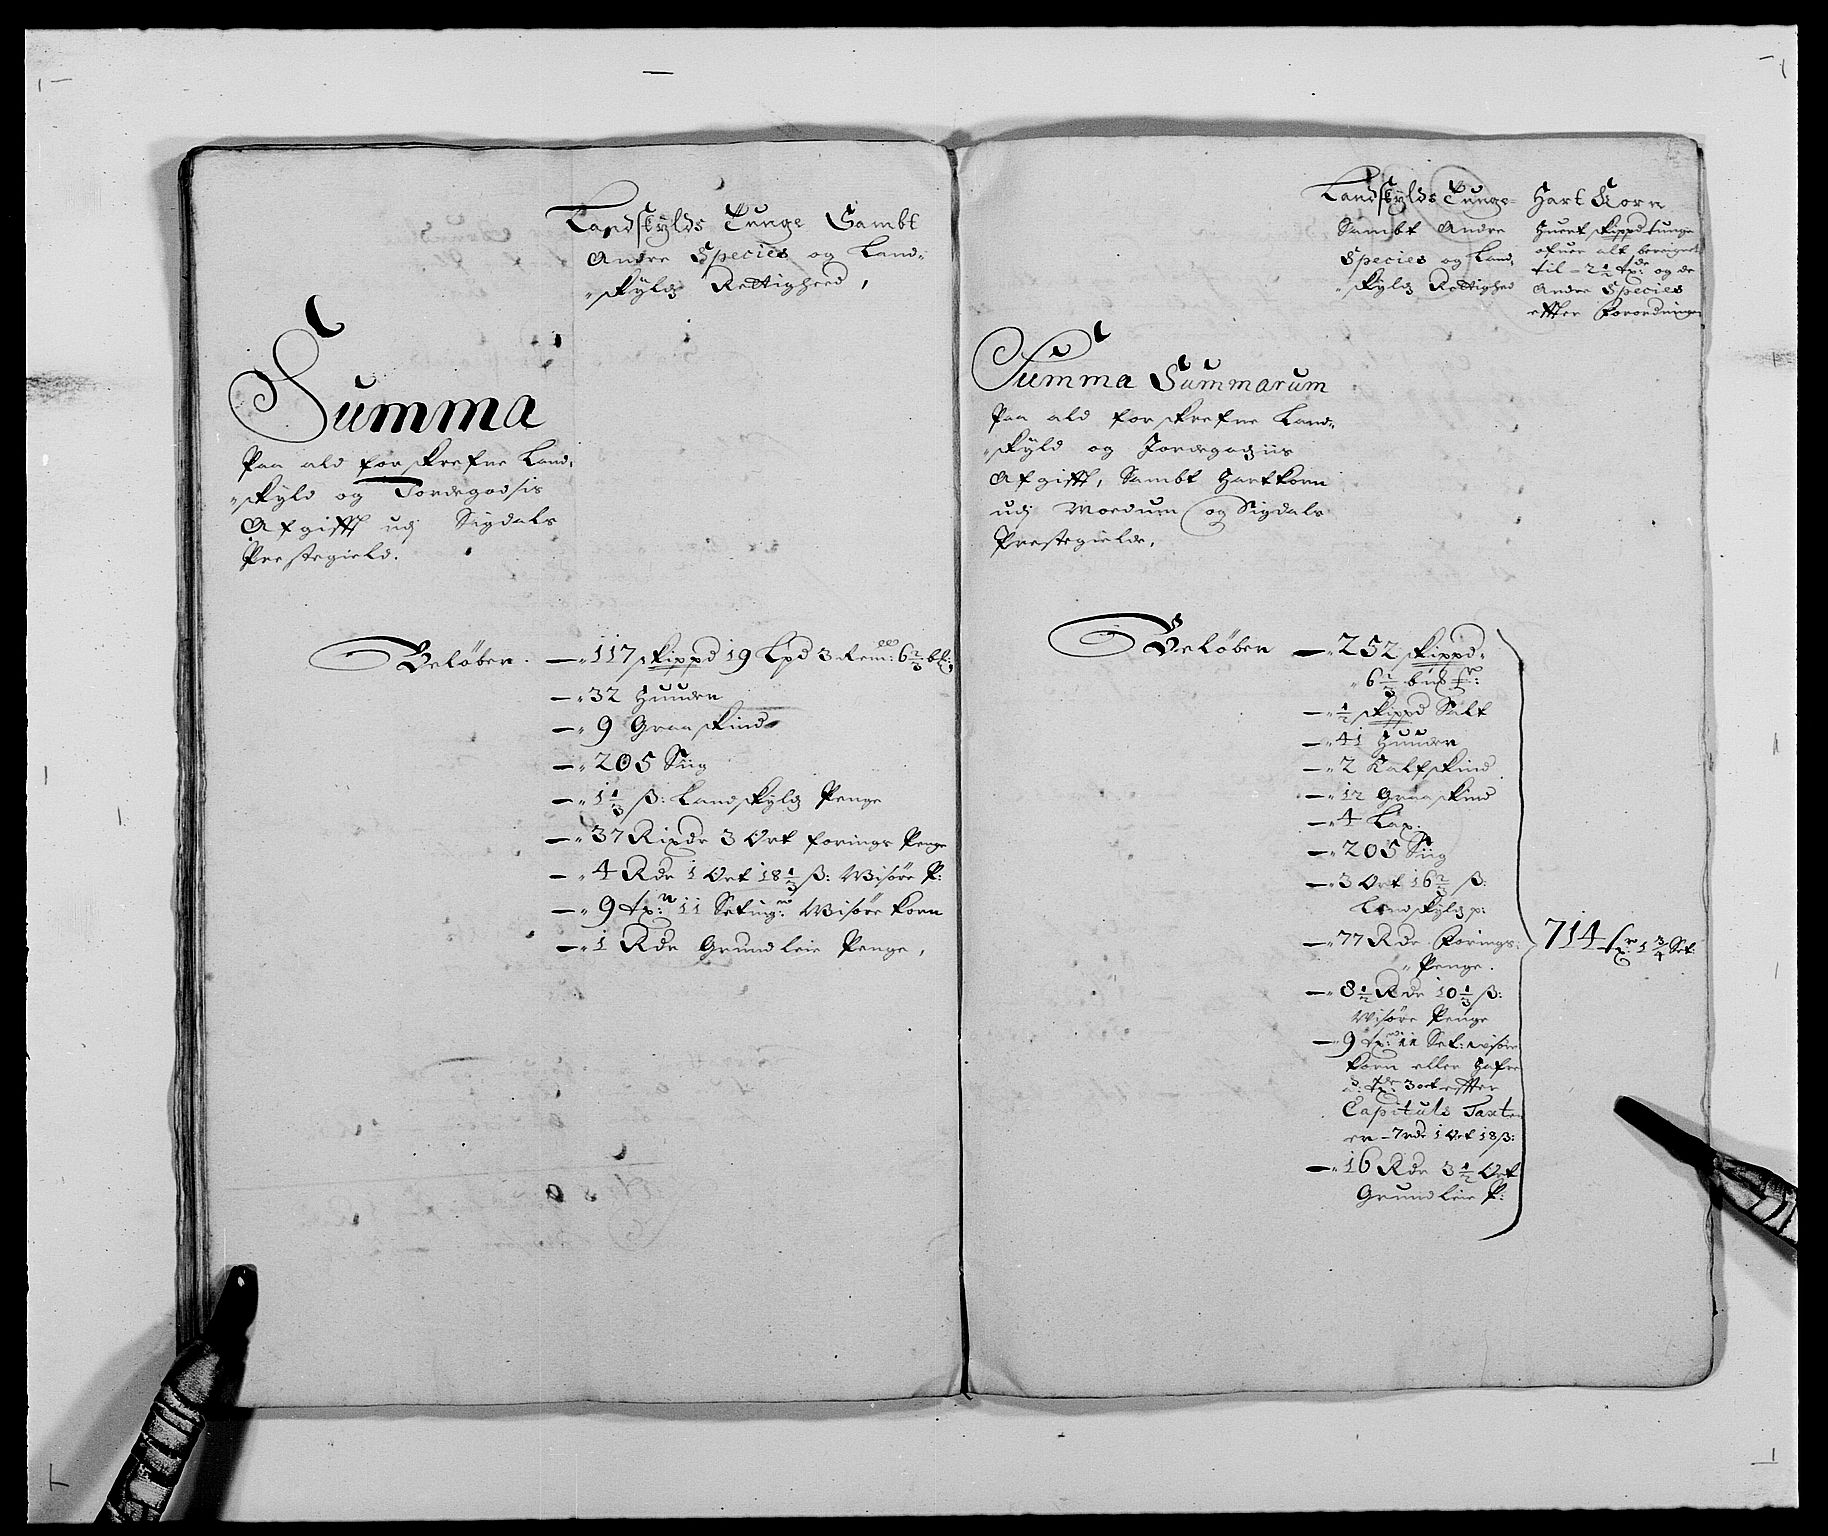 Landskylds Tunge Sambt
Andre Species og Land-
skylds Rettighed,
Summa
Paa ald forskrefne Land-
skyld og Jordegodsis
Afgifft udj Sigdals
Prestegield.
Beløber. — 117 skippd 19 Lpd 3 Rem: 6 2/3 bß:
— 32 Huuder
— 9 Graaskind
— 205 Siig
— 1 1/3 ß: Landskylds Penge
— 37 Rixdr 3 Ort forings Penge
— 4 Rdr 1 Ort 18 1/3 ß: Wisøre P:
— 9 tr 11 Seting: Wisøre korn
— 1 Rdr Grundleie Penge,
Landskylds Tunge
Sambt Andre
Species og Land-
skylds Rettighed
Hart Korn
Huert skippd tunge
ofuer alt beregnet
til 2 1/2 tr: og de
Andre Species
effter Forordningen
Summa Summarum
Paa ald forskrefne Land-
skyld og Jordegodziis
Afgifft, Sambt Hartkorn
udj Moedum og Sigdals
Prestegielde,
Beløber — 252 skippd
6 2/3
— 1/2 skippd Salt
— 41 Huuder
— 2 Kalfskind
— 12 Graaskind
— 4 Lax.
— 205 Siig
— 3 Ort 16 2/3 ß:
Landskylds p:
— 77 Rdr Forings
Penge.
— 8 1/2 Rdr 10 1/3 ß:
Wisøre Penge
— 9 tr: 11 Set: wisøre
korn eller Hafre
3 ort effter
Capituls Taxten
er 7 rdr 1 Ort 18 ß:
— 16 Rdr 3 1/2 Ort
Grundleie P:
714 tr 1 3/4 Set: